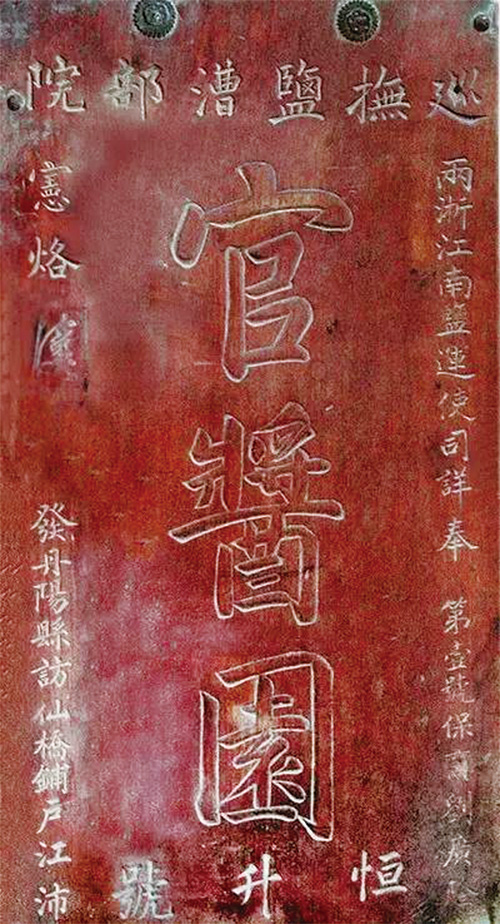 巡撫鹽漕部院
兩浙江南鹽運使司詳奉
第壹號保商劉廣
官醬園
憲烙
發丹陽縣訪仙橋鋪戶江沛
恒升號